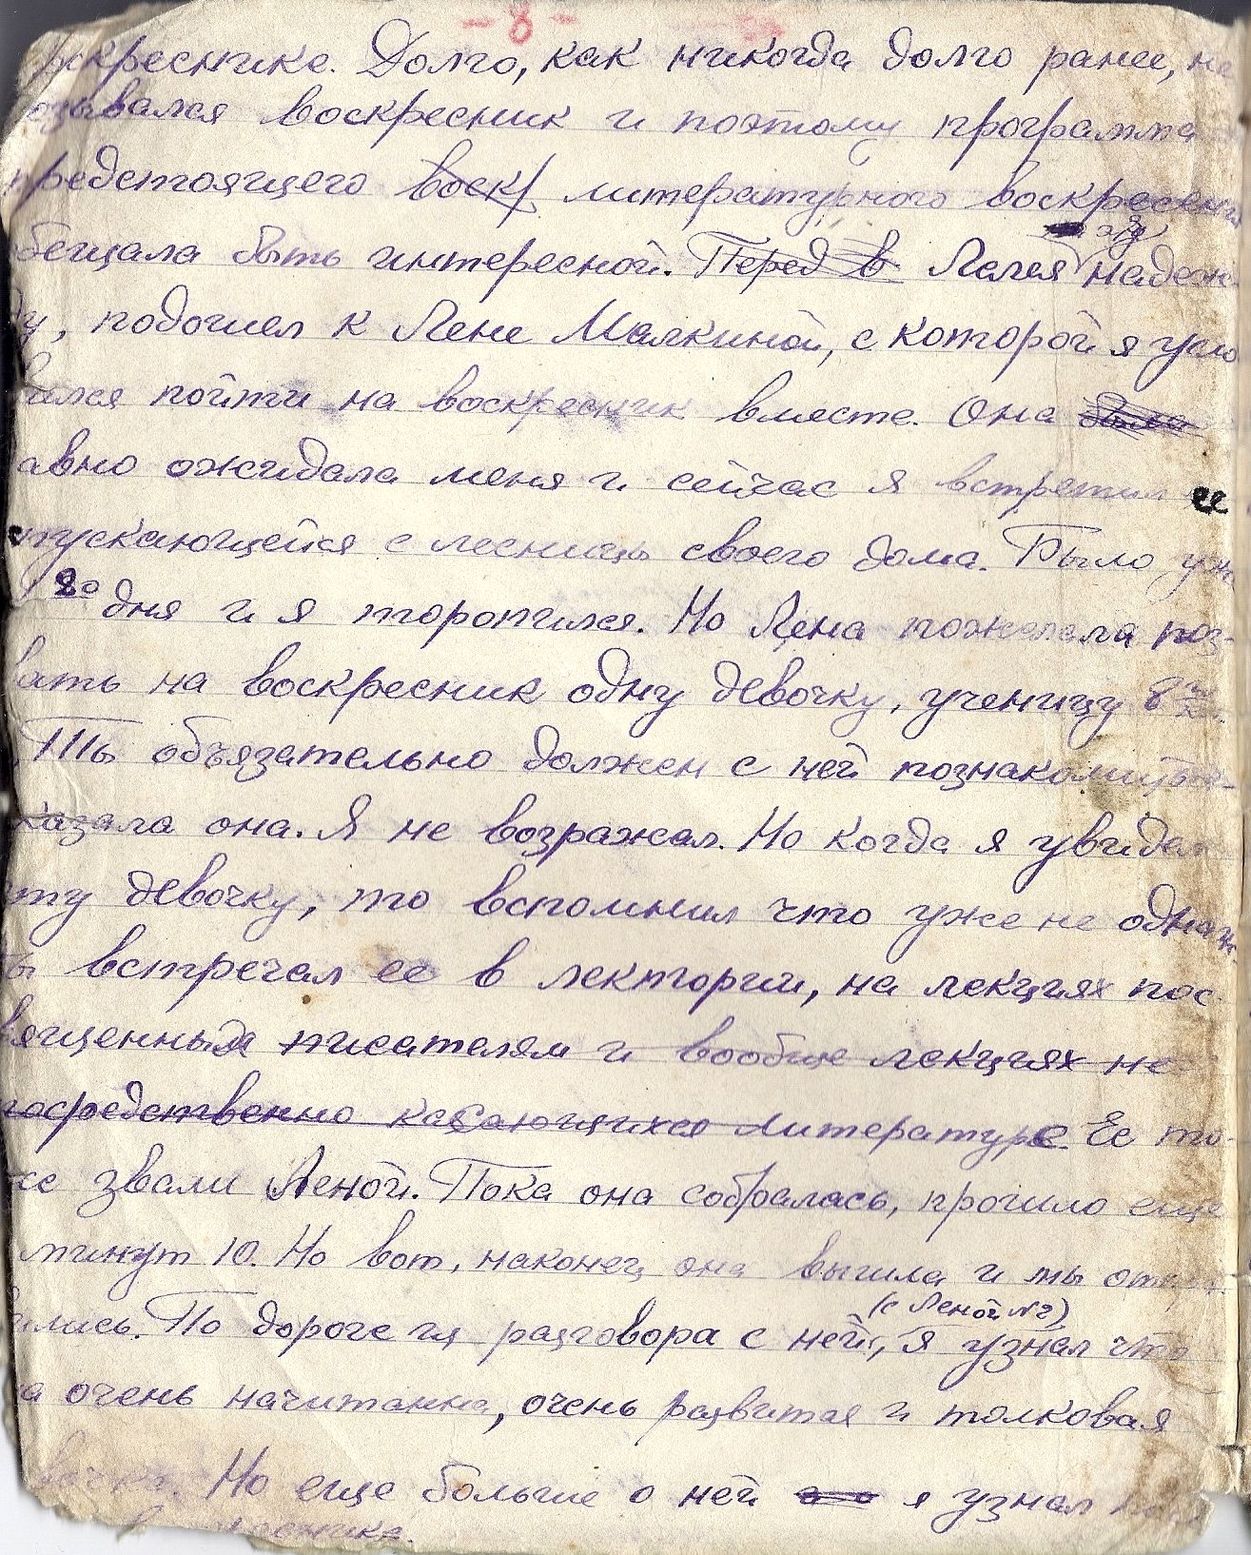 -8-
скреснике. Долго, как никогда долго ранее, не
озывался воскресник и поэтому программа
предстоящего воскр литературного воскресени
бещала быть интересной. Перед в Лелея эту надеж-
ду, подошел к Лене Малкиной, с которой я усло
вился пойти на воскресник вместе. Она была
авно ожидала меня и сейчас я встретил ее
спускающейся с лесницы своего дома. Было уж
дня и я торопился. Но Лена пожелала поз-
вать на воскресник одну девочку, ученицу 8
Ты объязательно должен с ней познакомиться-
казала она. Я не возражал. Но когда я увидел
эту девочку, то вспомнил что уже не однаж
ы встречал ее в лектории, на лекциях пос-
вященных писателям и вообще лекциях не
посредственно касающихся литературе. Ее то-
же звали Леной. Пока она собралась, прошло еще
минут 10. Но вот, наконец она вышла и мы отпр
ились. По дороге из разговора с ней, (с Леной №2) я узнал что
а очень начитанна, очень развитая и толковая
вочка. Но еще больше о ней я узнал